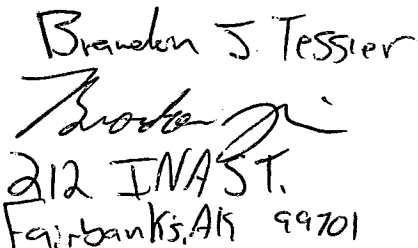 Brandon J. Tessier
212 INA ST.
Fairbanks, AK 99701